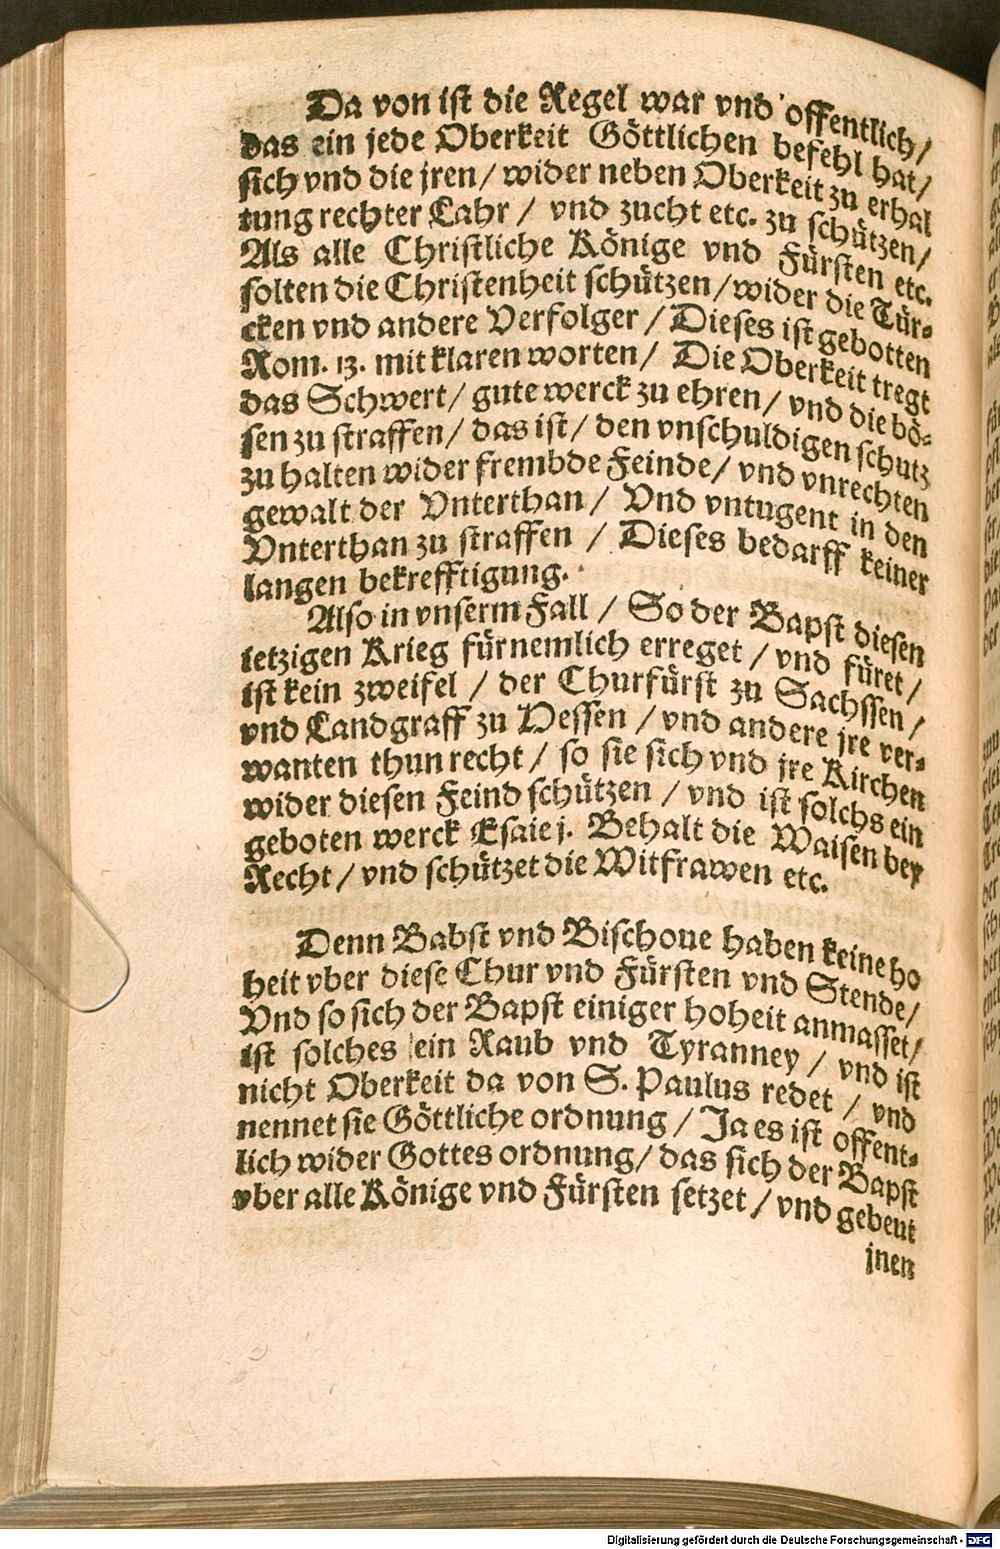 Da von ist die Regel war vnd offentlich/
das ein jede Oberkeit Göttlichen befehl hat/
sich vnd die jren/ wider neben Oberkeit zu erhal
tung rechter Lahr / vnd zucht etc. zu schützen/
Als alle Christliche Könige vnd Fürsten etc.
solten die Christenheit schützen/wider die Tür-
cken vnd andere Verfolger / Dieses ist gebotten
Rom. 13. mit klaren worten/ Die Oberkeit tregt
das Schwert/ gute werck zu ehren/ vnd die bö-
sen zu straffen/ das ist/ den vnschuldigen schutz
zu halten wider frembde Feinde/ vnd vnrechten
gewalt der Vnterthan / Vnd vntugent in den
Vnterthan zu straffen / Dieses bedarff keiner
langen bekrefftigung.
Also in vnserm Fall / So der Bapst diesen
ietzigen Krieg fürnemlich erreget / vnd füret /
ist kein zweifel / der Churfürst zu Sachssen /
vnd Landgraff zu Hessen / vnd andere jre ver-
wanten thun recht / so sie sich vnd jre Kirchen
wider diesen Feind schützen / vnd ist solchs ein
geboten werck Esaie j. Behalt die Waisen bey
Recht / vnd schützet die Witfrawen etc.
Denn Babst vnd Bischoue haben keine ho
heit vber diese Chur vnd Fürsten vnd Stende/
Vnd so sich der Bapst einiger hoheit anmasset/
ist solches ein Raub vnd Tyranney / vnd ist
nicht Oberkeit da von S. Paulus redet / vnd
nennet sie Göttliche ordnung / Ja es ist offent-
lich wider Gottes ordnung/ das sich der Bapst
vber alle Könige vnd Fürsten setzet / vnd gebeut
jnen
Digitalisierung gefördert durch die Deutsche Forschungsgemeinschaft - DFG